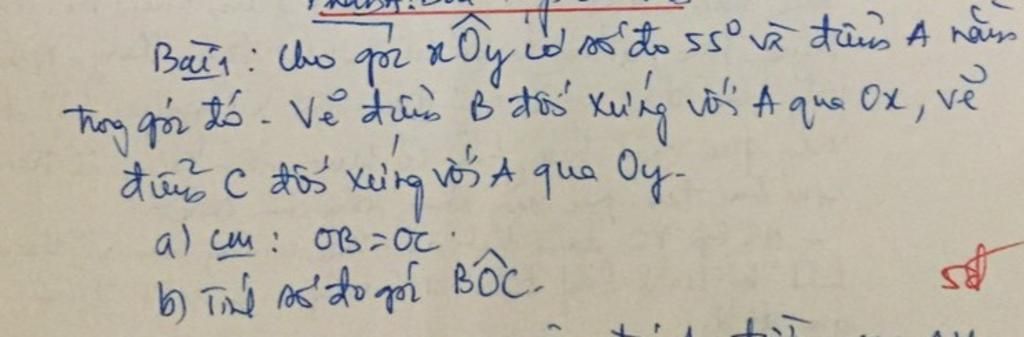 Bài 1: Cho góc xÔy có số đo 55° và điểm A nằm
trong góc đó. Vẽ điểm B đối xứng với A qua Ox, vẽ
điểm C đối xứng với A qua Oy.
a) cm: OB = OC.
b) Tính số đo góc BÔC.
5đ